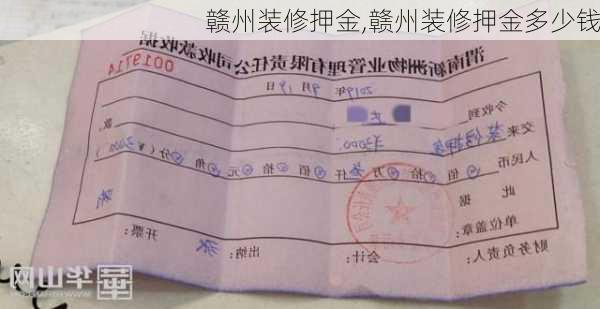 赣州装修押金,赣州装修押金多少钱
渭南新洲物业管理有限责任公司收款收据
0019714
2019年 9月 19日
今收到
交来 装修押金 款
人民币 佰 拾 万 叁仟 佰 拾 元 角 分(¥ 3000)
此
据
单位盖章:
财务负责人: 会计: 出纳: 开票:
华山网